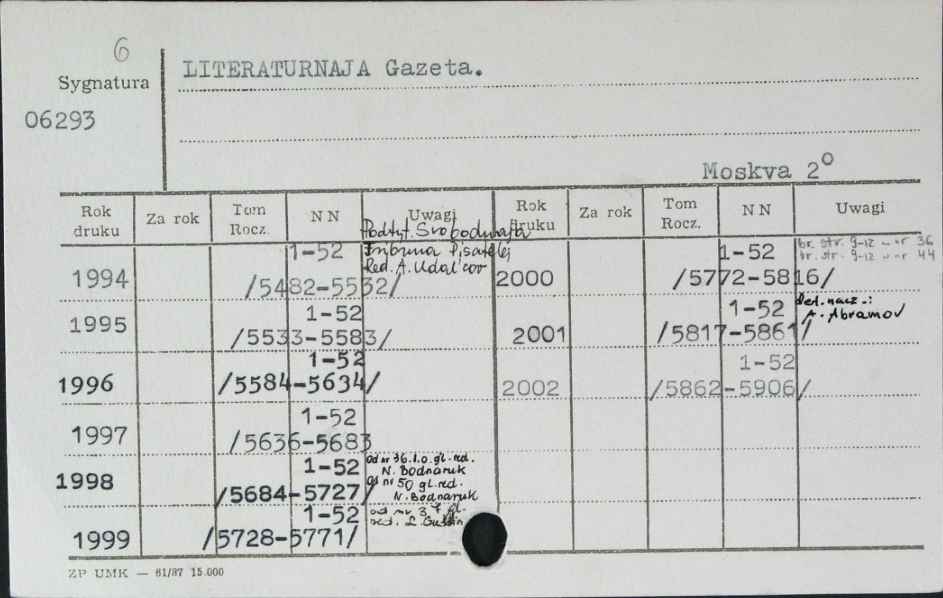 6
Sygnatura
LITERATURNAJA Gazeta.
06293
Moskva 2°
Rok druku Za rok Tom Rocz. NN Uwagi Rok druku Za rok Tom Rocz. NN Uwagi
Podtyt. Svobodnaja
Tribuna Pisatelej
Red. A. Udal'cov
1994 1-52
/5482-5532/
1995 1-52
/5533-5583/
1996 1-52
/5584-5634/
1997 1-52
/5636-5683
1998 1-52
/5684-5727/
od nr 36 i.o. gl. red.
N. Bodnaruk
od nr 50 gl. red.
N. Bodnaruk
1999 1-52
/5728-5771/
od nr 37 gl.
red. L.
2000 1-52
/5772-5816/
br. str. 9-12 w nr 36
br. str. 9-12 w nr 44
2001 1-52
/5817-5861/
Red. nacz.:
A. Abramov
2002 1-52
/5862-5906/
ZP UMK — 61/87 15.000